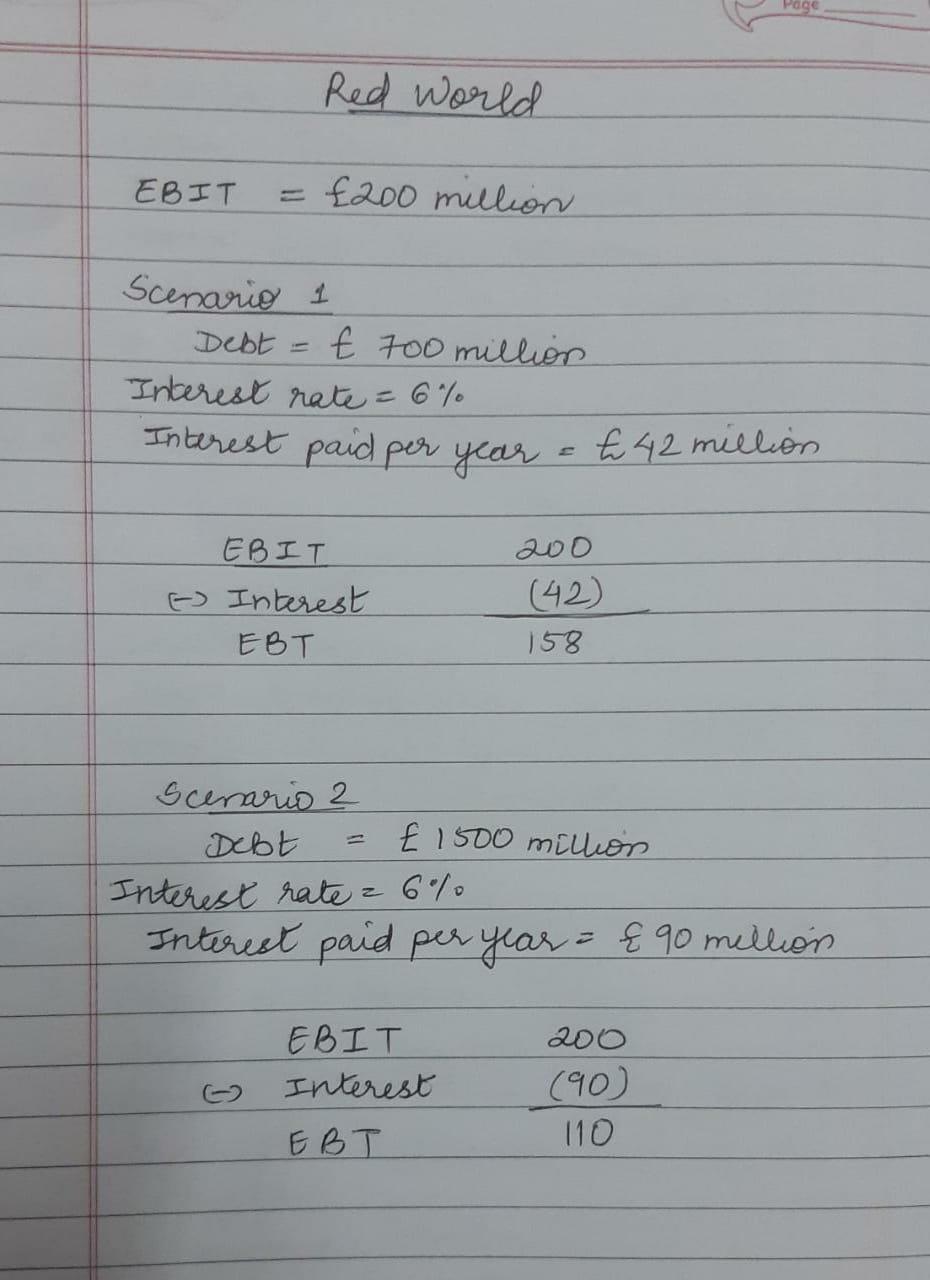 Page
Red World
EBIT = £200 million
Scenario 1
Debt = £ 700 million
Interest rate = 6%
Interest paid per year = £42 million
EBIT 200
(-) Interest (42)
EBT 158
Scenario 2
Debt = £1500 million
Interest rate = 6%
Interest paid per year = £90 million
EBIT 200
(-) Interest (90)
EBT 110